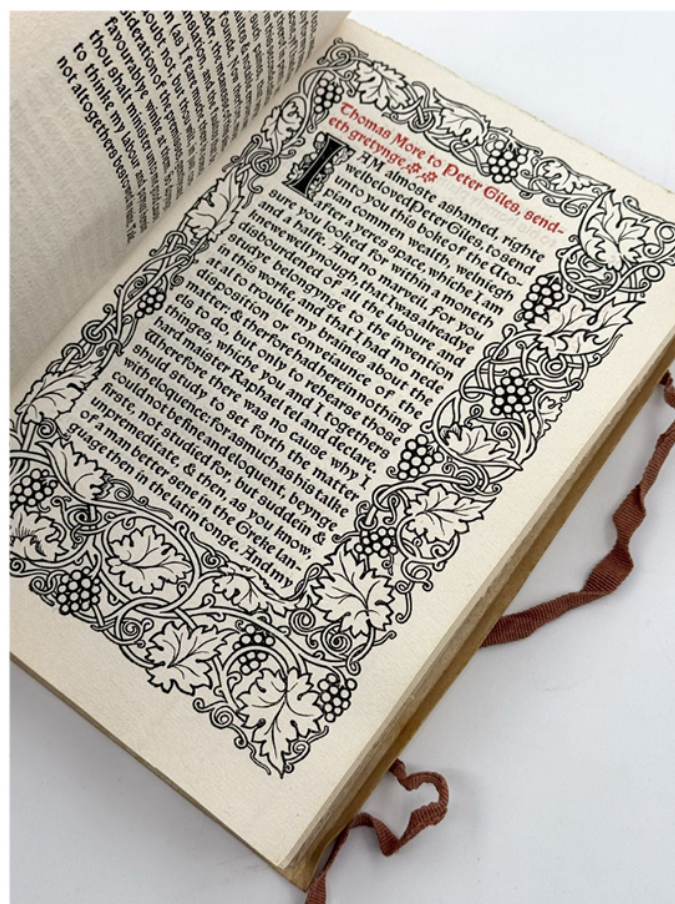 such pain
translation, and the faul
ader the meaner
(as I feare much
doubt not, but thou wilt
sideration of the premisses
favourablye winke at
thou shalt minister unto
to thinke my labour and
not altogethers bestowed in vain. Vale.
Thomas More to Peter Giles, send-
eth gretynge.
I AM almoste ashamed, righte
welbeloved Peter Giles, to send
unto you this boke of the Uto-
pian commen wealth, welniegh
after a yeres space, whiche I am
sure you looked for within a moneth
and a halfe. And no marveil. For you
knewe well ynough, that I was alreadye
disbourdened of all the laboure and
studye belongynge to the invention
in this worke, and that I had no nede
at al to trouble my braines about the
disposition or conveiaunce of the
matter: & therfore had herein nothing
els to do, but only to rehearse those
thinges, whiche you and I togethers
hard maister Raphael tel and declare.
Wherefore there was no cause why I
shuld study to set forth the matter
with eloquence: forasmuch as his talke
could not be fine and eloquent, beynge
firste, not studied for, but suddein &
unpremeditate, & then, as you know,
of a man better sene in the Greke lan-
guage then in the latin tonge. And my